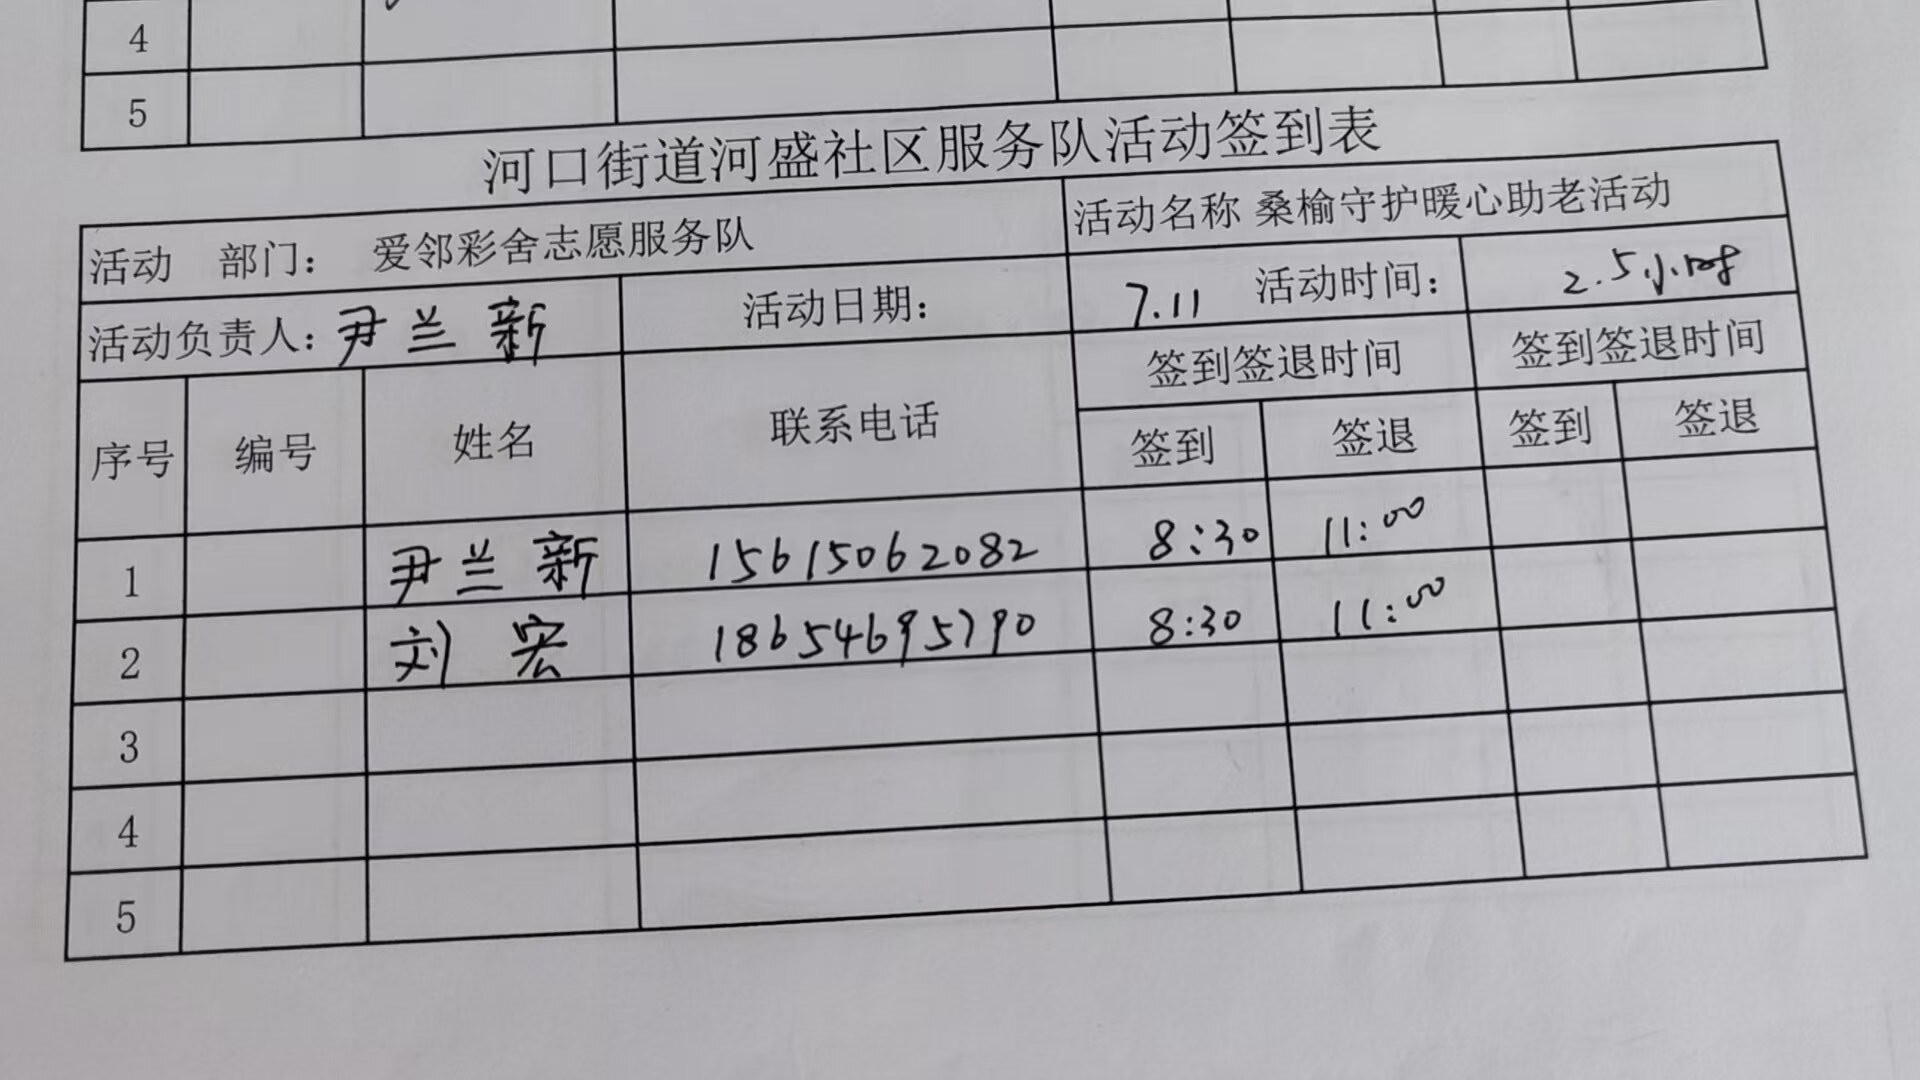 4
5
河口街道河盛社区服务队活动签到表
活动 部门： 爱邻彩舍志愿服务队 活动名称 桑榆守护暖心助老活动
活动负责人：尹兰新 活动日期： 7.11 活动时间： 2.5小时
序号 编号 姓名 联系电话 签到签退时间 签到签退时间
签到 签退 签到 签退
1 尹兰新 15615062082 8:30 11:00
2 刘宏 18654695790 8:30 11:00
3
4
5